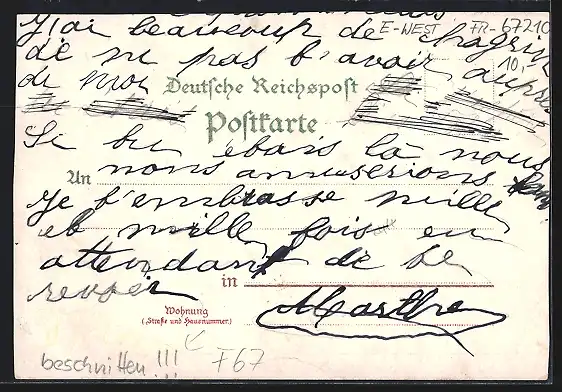 J'ai beaucoup de chagrin
E-WEST FR-67210
de ne pas t'avoir auprès
10
de moi
Deutsche Reichspost
Postkarte
Si tu etais là nous
An nous amuserions
Je t'embrasse mille
et mille fois en
attendant de te
revoir
in
Marthe
Wohnung
(Straße und Hausnummer.)
beschnitten !!! F67